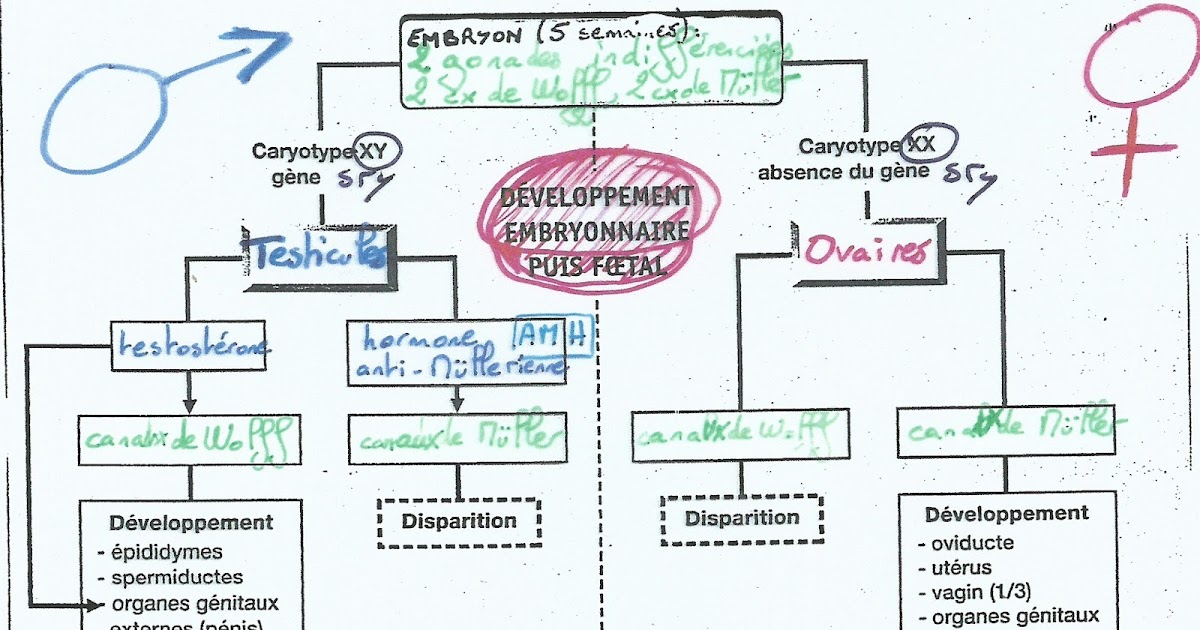 EMBRYON (5 semaines):
2 gonades indifférenciées
2 cx de Wolff, 2 cx de Müller
Caryotype XY
gène sry
Caryotype XX
absence du gène sry
DÉVELOPPEMENT
EMBRYONNAIRE
PUIS FŒTAL
Testicules
Ovaires
testostérone
hormone AMH
anti-Müllerienne
canaux de Wolff
canaux de Müller
canaux de Wolff
canaux de Müller
Développement
- épididymes
- spermiductes
- organes génitaux
externes (pénis)
Disparition
Disparition
Développement
- oviducte
- utérus
- vagin (1/3)
- organes génitaux